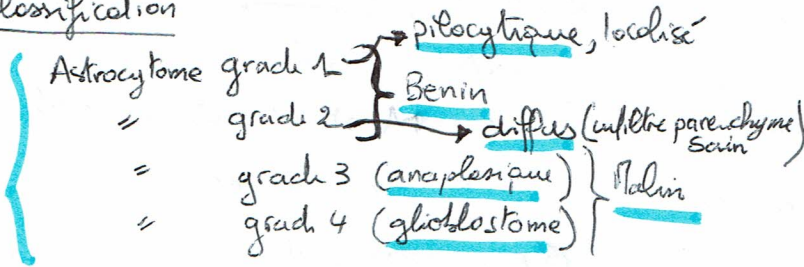 Classification
Astrocytome grade 1 → pilocytique, localisé
Benin
〃 grade 2 → diffus (infiltre parenchyme sain)
〃 grade 3 (anaplasique)
Malin
〃 grade 4 (glioblastome)